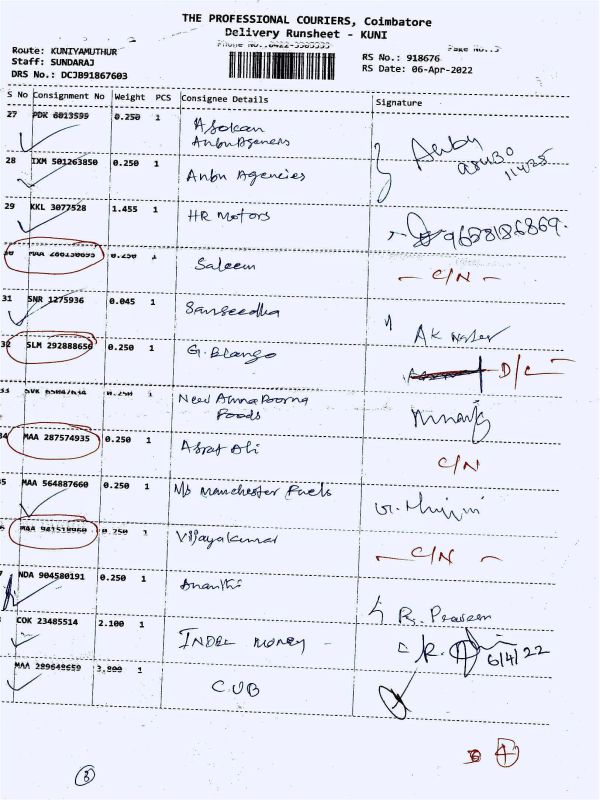 THE PROFESSIONAL COURIERS, Coimbatore
Delivery Runsheet - KUNI
Route: KUNIYAMUTHUR
Staff: SUNDARAJ
DRS No.: DCJB91867603
RS No.: 918676
RS Date: 06-Apr-2022
S No Consignment No Weight PCS Consignee Details Signature
27 PDK 6013599 0.250 1 Asokan
Anbu Agencies
28 IXM 501263850 0.250 1 Anbu Agencies
29 KKL 3077528 1.455 1 HR Motors 9688186869.
30 MAA 0.250 1 Saleem - C/N -
31 SNR 1275936 0.045 1 Sanseedha AK
32 SLM 292888656 0.250 1 G. D/C
33 0.250 1 New Annapoorna
Foods
34 MAA 287574935 0.250 1 Asraf Ali C/N
35 MAA 564887660 0.250 1 M/s Manchester Fuels
36 MAA 941518960 0.250 1 Vijayakumar - C/N -
NDA 904580191 0.250 1 Ananthi R. Praveen
COK 23485514 2.100 1 INDEL MONEY - 6/4/22
MAA 289648659 3.800 1 C.U.B
4
8